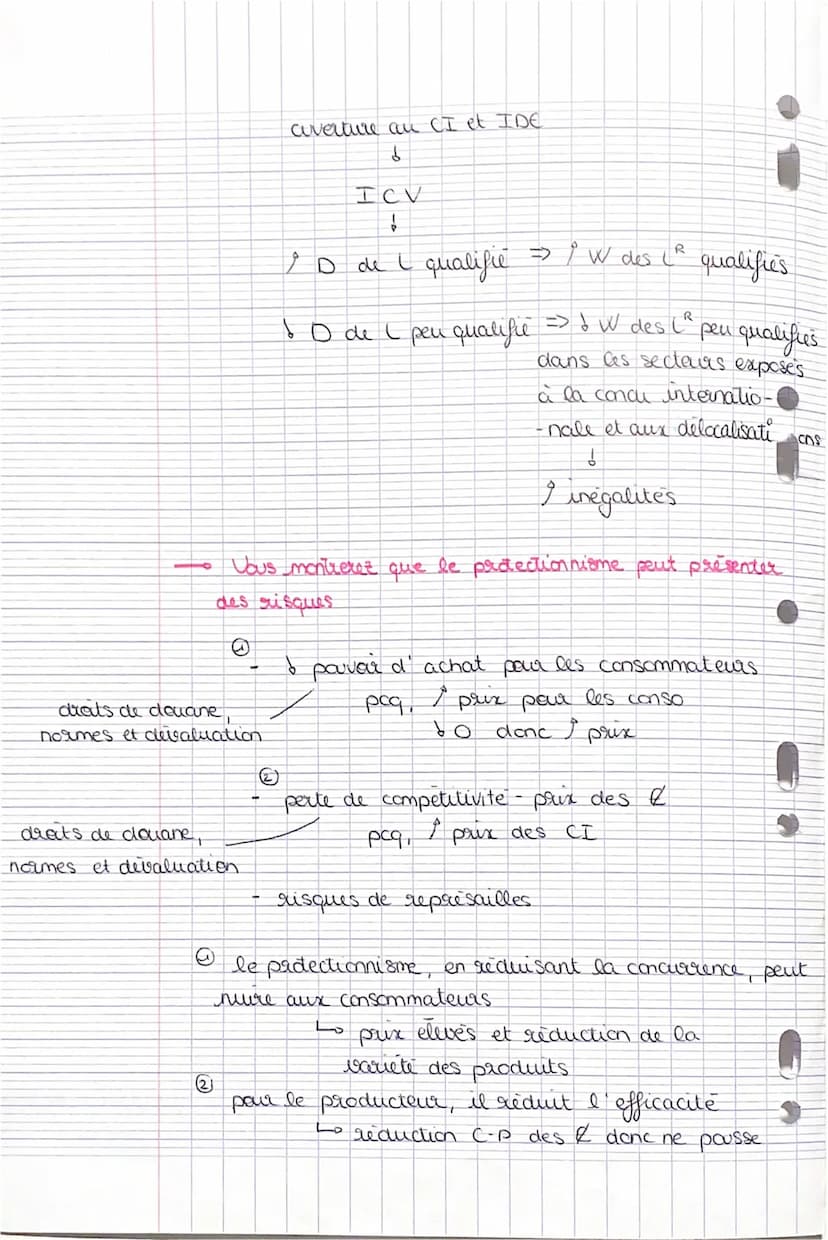 ouverture au CI et IDE
↓
ICV
↓
↑ D de L qualifié => ↑ W des L^R qualifiés
↓ D de L peu qualifié => ↓ W des L^R peu qualifiés
dans les secteurs exposés
à la concu internatio-
-nale et aux délocalisations
↓
↑ inégalités
→ Vous montrerez que le protectionnisme peut présenter
des risques
①
- ↓ pouvoir d'achat pour les consommateurs
droits de douane,
normes et dévaluation
pcq, ↑ prix pour les conso
↓ O donc ↑ prix
②
- perte de compétitivité-prix des E
droits de douane,
normes et dévaluation
pcq, ↑ prix des CI
- risques de représailles
① le protectionnisme, en réduisant la concurrence, peut
nuire aux consommateurs
↳ prix élevés et réduction de la
variété des produits
② pour le producteur, il réduit l'efficacité
↳ réduction C-P des E donc ne pousse